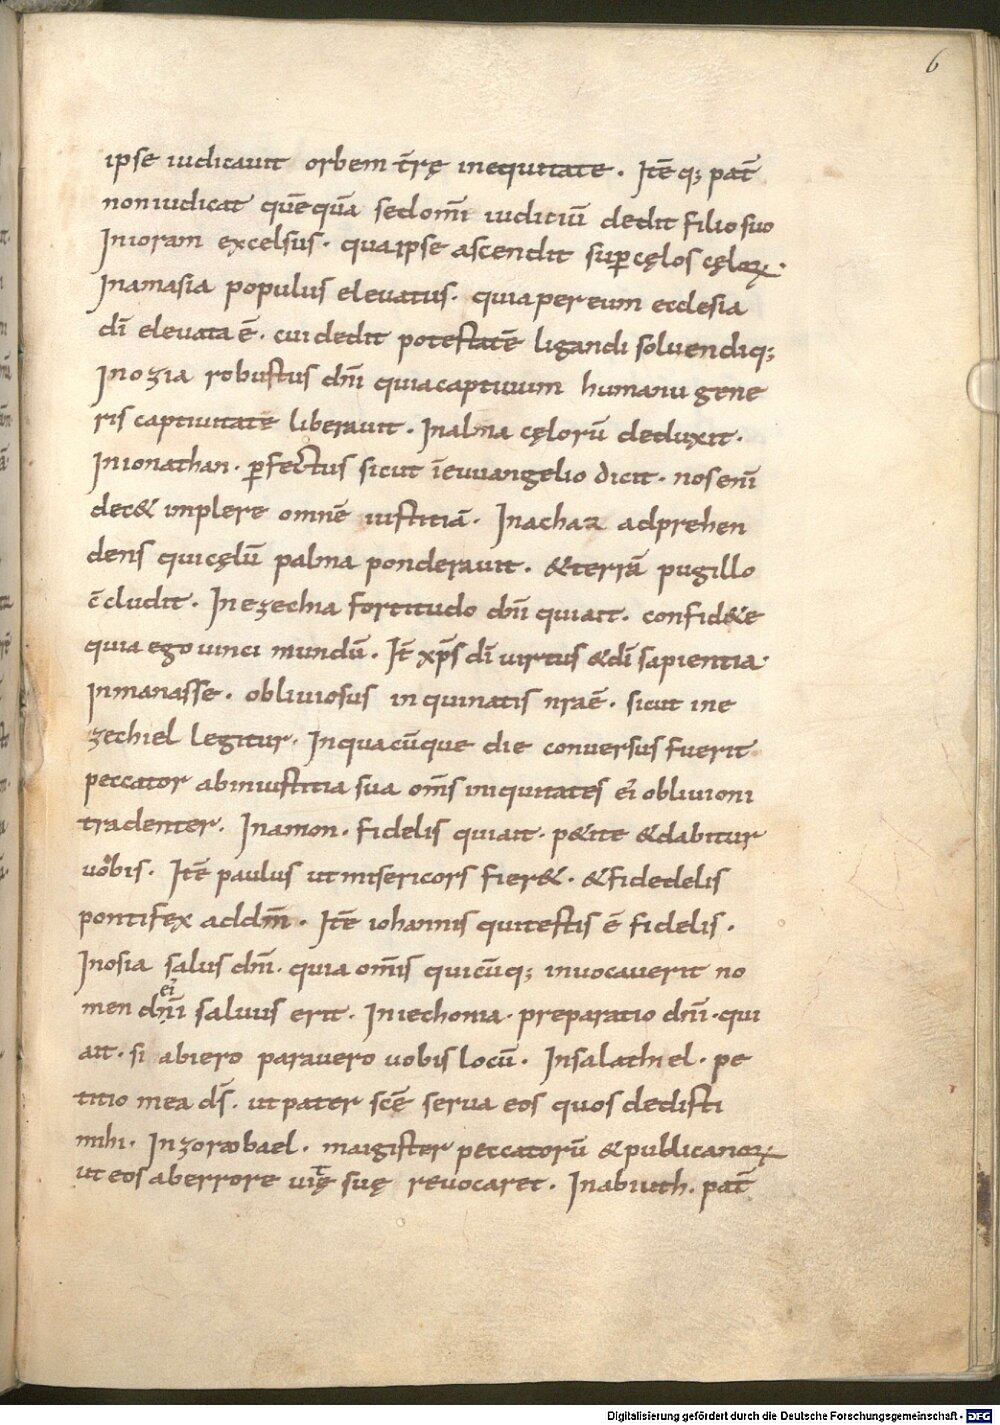 6
ipse iudicauit orbem t̄rę inequitate. Itē q; pat̄
non iudicat quēquā sed om̄i iudiciū dedit filio suo
In ioram excelsus. quia ipse ascendit sup̄ cęlos cęloꝝ.
In amasia populus eleuatus. quia per eum ecclesia
dī eleuata ē. cui dedit potestatē ligandi soluendiq;
In ozia robustus dn̄i quia captiuum humanu gene
ris captiuitate liberauit. In alma cęlorū deduxit.
In ionathan. ꝑfectus sicut ī euuangelio dicit. nos enī
dec& implere omnē iustitiā. In achaz adprehen
dens qui cęlū palma ponderauit. & terrā pugillo
c̄cludit. In ezechia fortitudo dn̄i quia it. confid&e
quia ego uinci mundū. It̄ xp̄s dī uirtus & dī sapientia.
In manasse. obliuiosus in quinatis nr̄aē. sicut in e
zechiel legitur. In quacūque die conuersus fuerit
peccator ab iniustitia sua om̄s iniquitates eī obliuioni
tradenter. In amon. fidelis quiait. p&ite & dabitur
uobis. Itē paulus ut misericors fier&. & fidedelis
pontifex ad dm̄. Itē iohannis qui testis ē fidelis.
In osia salus dn̄i. quia om̄is quicūq; inuocauerit no
men dn̄i eī saluus erit. In iechonia. preparatio dn̄i. qui
ait. si abiero parauero uobis locū. In salathiel. pe
titio mea ds̄. ut pater scē serua eos quos dedisti
mihi. In zorobabel. maigister peccatorū & publicanoꝝ
ut eos ab errore uitę suę reuocaret. In abiuth. pat̄
Digitalisierung gefördert durch die Deutsche Forschungsgemeinschaft - DFG